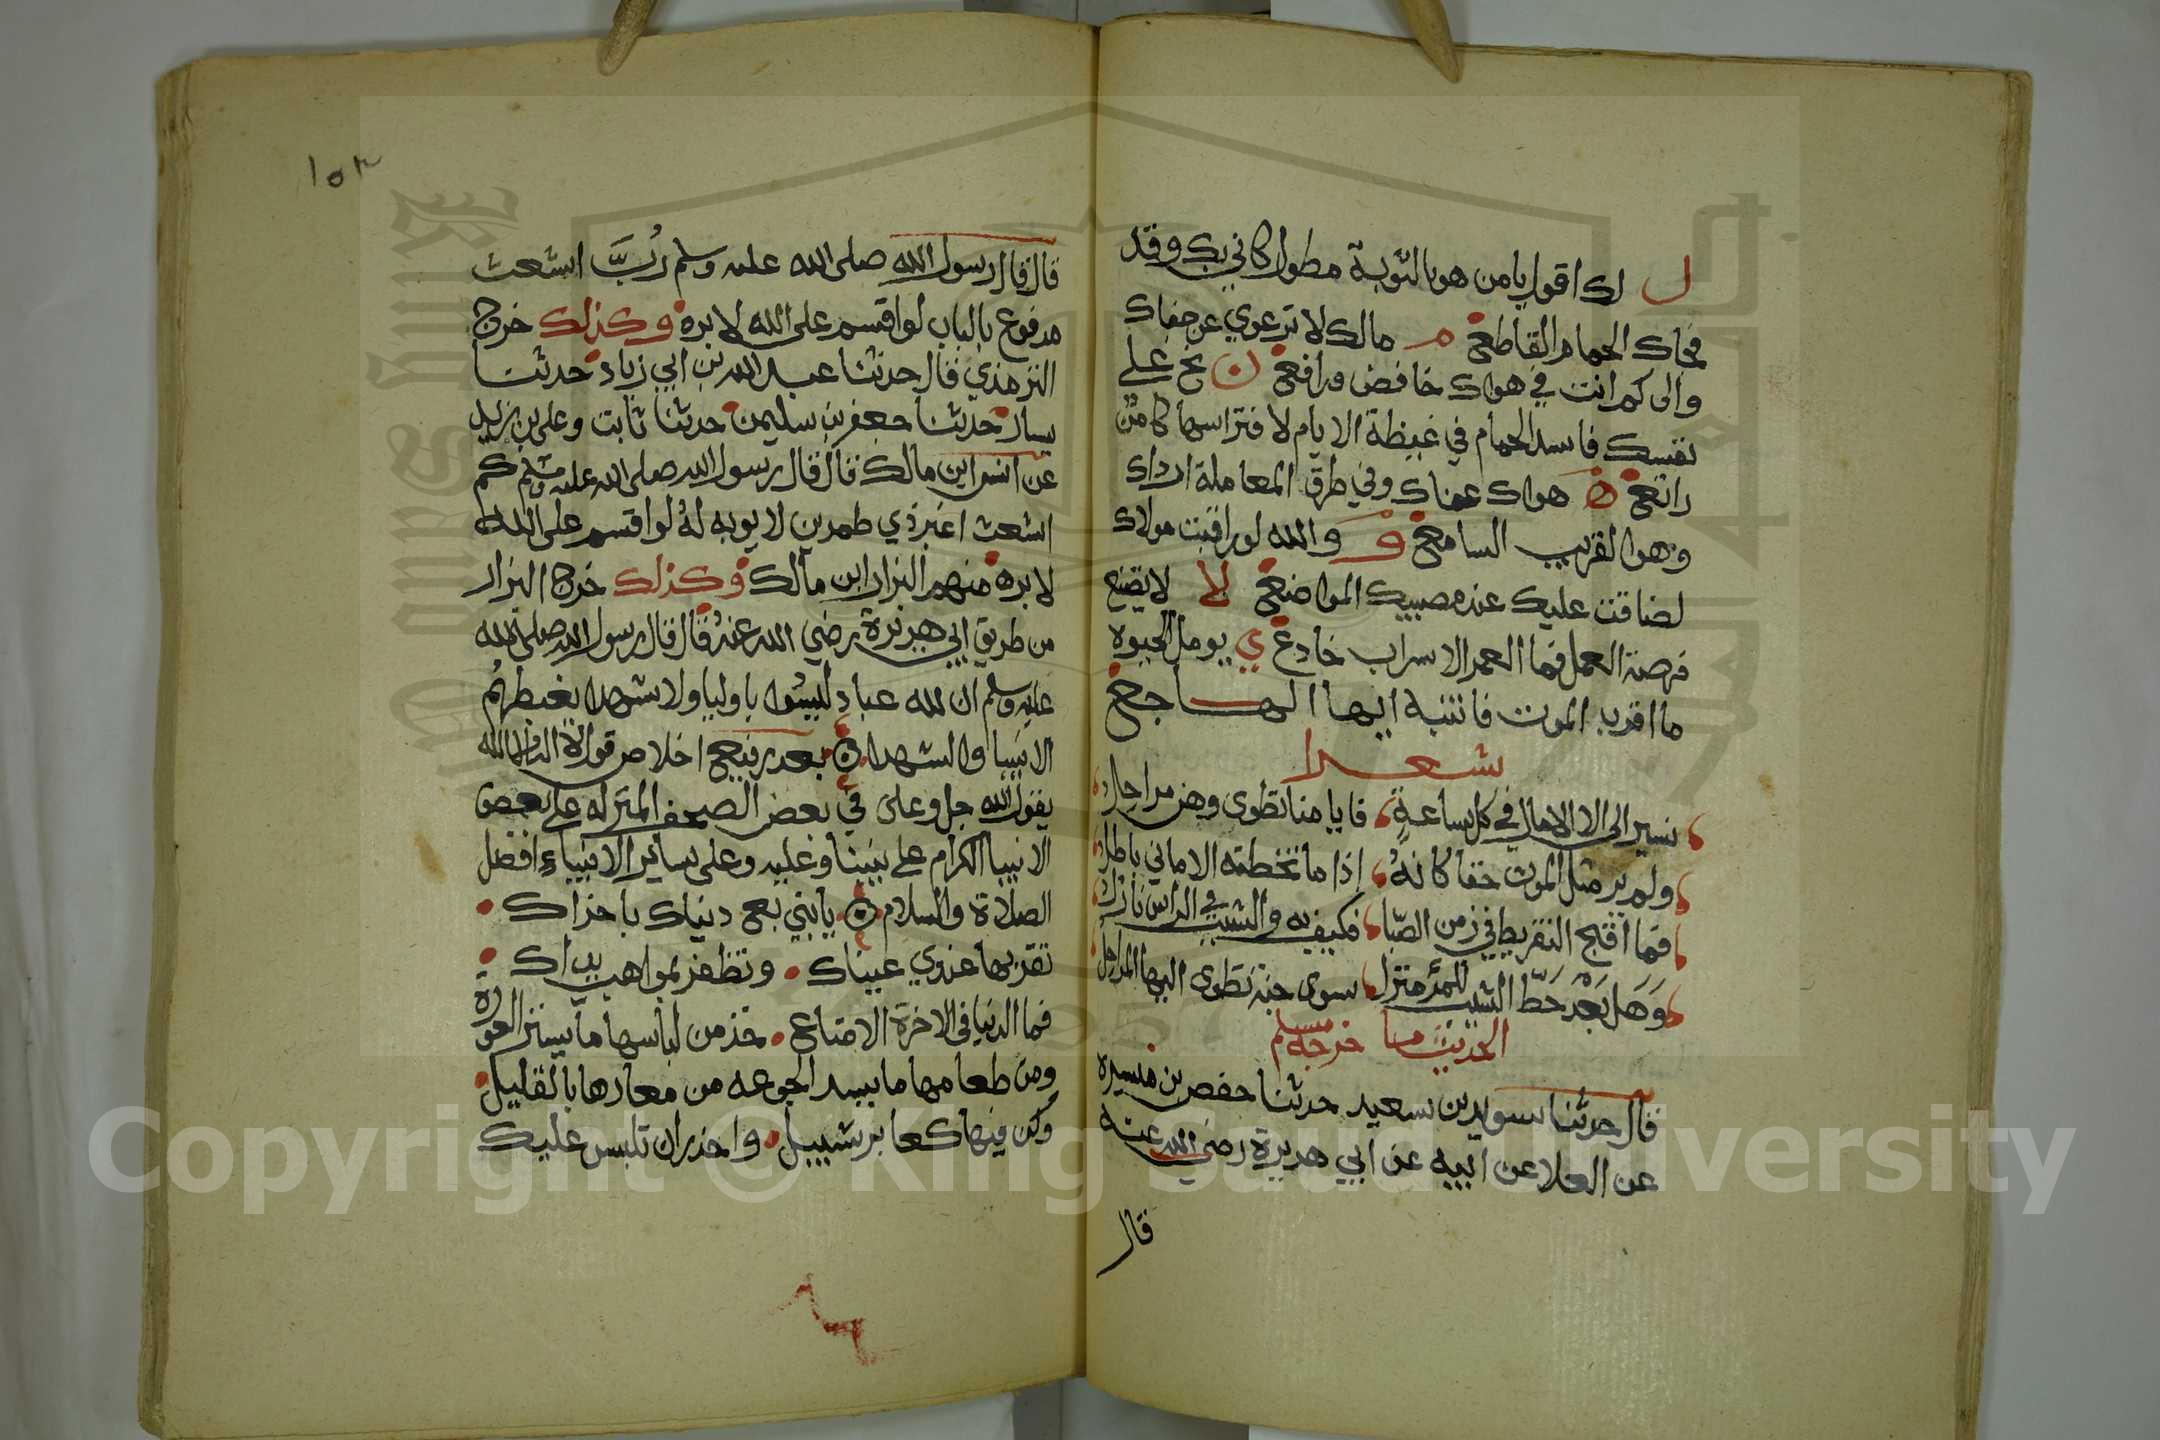 ل لك اقول يا من هو بالتوبة مطول كاني بك وقد
فجاك الحمام القاطع م مالك لا ترعوي عن جفاك
والى كم انت في هواك خافض ورافع ن نح على
نفسك فاسد الحمام في غيظة الايام لافتراسها كامن
راتع ه هواك عماك وفي طرق المعاملة ارداك
وهو القريب السامع و والله لو راقبت مولاك
لضاقت عليك عند مصيبك المواضع لا لا يضع
فرصة العمل فما العمر الا سراب خادع ي يومل الحيوة
ما اقرب الموت فانتبه ايها الهاجع
شعرا
نسير الى الاجال في كل ساعة فايامنا تطوى وهن مراحل
ولم ير مثل الموت حقا كانه اذا ما تخطته الاماني باطل
فما اقبح التفريط في زمن الصبا فكيف به والشيب في الراس نازل
وهل بعد حط الشيب للمرء منزل سوى جنة تطوى اليها المراحل
الحديث خرجه مسلم
قال حدثنا سويد بن سعيد حدثنا حفص بن ميسرة
عن العلا عن ابيه عن ابي هريرة رضي الله عنه
قال
١٥٣
قال قال رسول الله صلى الله عليه وسلم رب اشعث
مدفوع بالباب لو اقسم على الله لابره وكذلك خرج
الترمذي قال حدثنا عبد الله بن ابي زياد حدثنا
يسار حدثنا جعفر بن سليمن حدثنا ثابت وعلي بن زيد
عن انس ابن مالك قال قال رسول الله صلى الله عليه وسلم كم
اشعث اغبر ذي طمرين لا يوبه له لو اقسم على الله
لابره منهم البزار ابن مالك وكذلك خرج البزار
من طريق ابي هريرة رضي الله عنه قال قال رسول الله صلى الله
عليه وسلم ان لله عباد ليسوا باوليا ولا شهدا يغبطهم
الانبيا والشهدا بعد رفيع اخلاص قول لا اله الا الله
يقول الله جل وعلى في بعض الصحف المنزله على بعض
الانبيا الكرام على نبينا وعليه وعلى ساير الانبياء افضل
الصلاة والسلام يابني بع دنياك باخراك
تقر بها غدوي عيناك وتظفر بمواهب يداك
فما الدنيا في الاخرة الا متاع خذ من لباسها ما يستر العورة
ومن طعامها ما يسد الجوعه من معارها بالقليل
وكن فيها كعابر سبيل واحذر ان تلبس عليك
Copyright © King Saud University